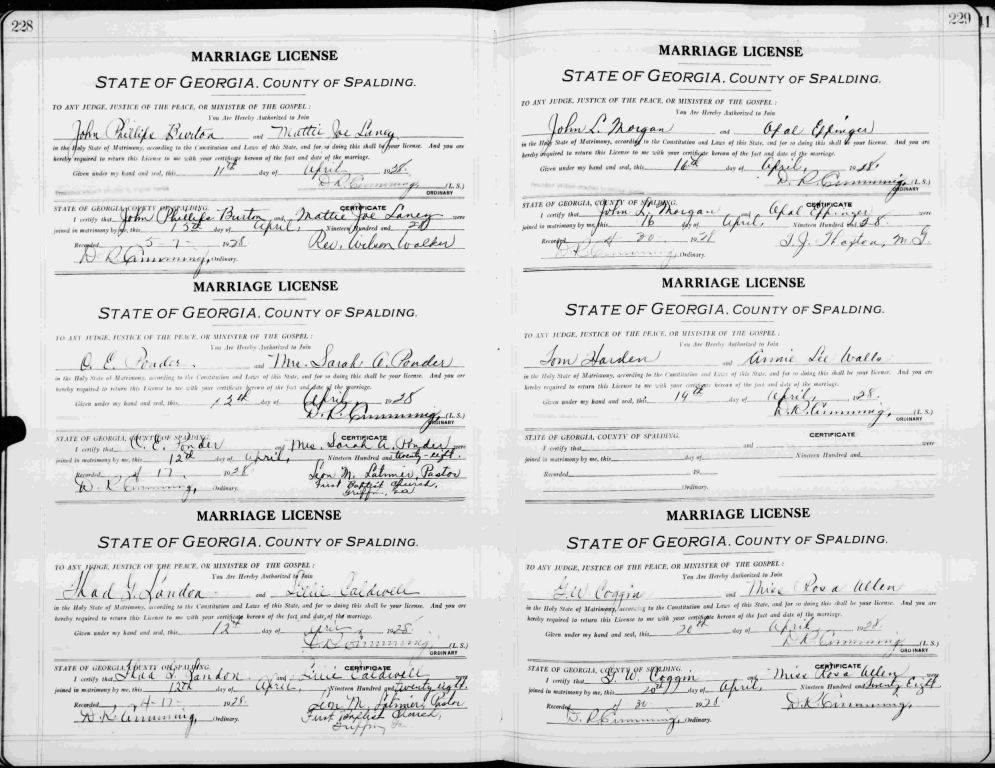 228
MARRIAGE LICENSE
STATE OF GEORGIA, COUNTY OF SPALDING.
TO ANY JUDGE, JUSTICE OF THE PEACE, OR MINISTER OF THE GOSPEL:
You Are Hereby Authorized to Join
John Phillips Burton and Mattie Joe Laney
in the Holy State of Matrimony, according to the Constitution and Laws of this State, and for so doing this shall be your license. And you are
hereby required to return this License to me with your certificate hereon of the fact and date of the marriage.
Given under my hand and seal, this 11th day of April 1928.
D. R. Cumming, (L. S.)
ORDINARY
STATE OF GEORGIA, COUNTY OF SPALDING. CERTIFICATE
I certify that John Phillips Burton and Mattie Joe Laney were
joined in matrimony by me, this 15th day of April, Nineteen Hundred and 28
Recorded 5-7- 1928 Rev. Wilson Walker
D. R. Cumming, Ordinary.
MARRIAGE LICENSE
STATE OF GEORGIA, COUNTY OF SPALDING.
TO ANY JUDGE, JUSTICE OF THE PEACE, OR MINISTER OF THE GOSPEL:
You Are Hereby Authorized to Join
O. E. Ponder and Mrs. Sarah A. Ponder
in the Holy State of Matrimony, according to the Constitution and Laws of this State, and for so doing this shall be your license. And you are
hereby required to return this License to me with your certificate hereon of the fact and date of the marriage.
Given under my hand and seal, this 12th day of April 1928
D. R. Cumming, (L. S.)
ORDINARY
STATE OF GEORGIA, COUNTY OF SPALDING. CERTIFICATE
I certify that E. Ponder and Mrs. Sarah A. Ponder were
joined in matrimony by me, this 12th day of April, Nineteen Hundred and twenty-eight.
Recorded 4 17 1928 Leon M. Latimer, Pastor
D. R. Cumming, Ordinary. First Baptist Church,
Griffin, Ga
MARRIAGE LICENSE
STATE OF GEORGIA, COUNTY OF SPALDING.
TO ANY JUDGE, JUSTICE OF THE PEACE, OR MINISTER OF THE GOSPEL:
You Are Hereby Authorized to Join
Thad G. Landon and Lillie Caldwell
in the Holy State of Matrimony, according to the Constitution and Laws of this State, and for so doing this shall be your license. And you are
hereby required to return this License to me with your certificate hereon of the fact and date of the marriage.
Given under my hand and seal, this 12th day of April 1928
D. R. Cumming, (L. S.)
ORDINARY
STATE OF GEORGIA, COUNTY OF SPALDING. CERTIFICATE
I certify that Thad G. Landon and Lillie Caldwell were
joined in matrimony by me, this 12th day of April, Nineteen Hundred and twenty eight.
Recorded 4-17- 1928. Leon M. Latimer, Pastor
D. R. Cumming, Ordinary. First Baptist Church,
Griffin, Ga
229
MARRIAGE LICENSE
STATE OF GEORGIA, COUNTY OF SPALDING.
TO ANY JUDGE, JUSTICE OF THE PEACE, OR MINISTER OF THE GOSPEL:
You Are Hereby Authorized to Join
John L. Morgan and Opal Eppinger
in the Holy State of Matrimony, according to the Constitution and Laws of this State, and for so doing this shall be your license. And you are
hereby required to return this License to me with your certificate hereon of the fact and date of the marriage.
Given under my hand and seal, this 16th day of April, 1928.
D. R. Cumming, (L. S.)
ORDINARY
STATE OF GEORGIA, COUNTY OF SPALDING. CERTIFICATE
I certify that John L. Morgan and Opal Eppinger were
joined in matrimony by me, this 16 day of April, Nineteen Hundred and 28
Recorded 4 30 1928
D. R. Cumming, Ordinary.
MARRIAGE LICENSE
STATE OF GEORGIA, COUNTY OF SPALDING.
TO ANY JUDGE, JUSTICE OF THE PEACE, OR MINISTER OF THE GOSPEL:
You Are Hereby Authorized to Join
Tom Harden and Annie Lee Walls
in the Holy State of Matrimony, according to the Constitution and Laws of this State, and for so doing this shall be your license. And you are
hereby required to return this License to me with your certificate hereon of the fact and date of the marriage.
Given under my hand and seal, this 19th day of April, 1928.
D. R. Cumming, (L. S.)
ORDINARY
STATE OF GEORGIA, COUNTY OF SPALDING. CERTIFICATE
I certify that and were
joined in matrimony by me, this day of Nineteen Hundred and
Recorded 19
Ordinary.
MARRIAGE LICENSE
STATE OF GEORGIA, COUNTY OF SPALDING.
TO ANY JUDGE, JUSTICE OF THE PEACE, OR MINISTER OF THE GOSPEL:
You Are Hereby Authorized to Join
G. W. Coggin and Miss Rosa Allen
in the Holy State of Matrimony, according to the Constitution and Laws of this State, and for so doing this shall be your license. And you are
hereby required to return this License to me with your certificate hereon of the fact and date of the marriage.
Given under my hand and seal, this 20th day of April 1928
D. R. Cumming, (L. S.)
ORDINARY
STATE OF GEORGIA, COUNTY OF SPALDING. CERTIFICATE
I certify that G. W. Coggin and Miss Rosa Allen were
joined in matrimony by me, this 20th day of April, Nineteen Hundred and Twenty Eight
Recorded 4 30 1928. D. R. Cumming,
D. R. Cumming, Ordinary.